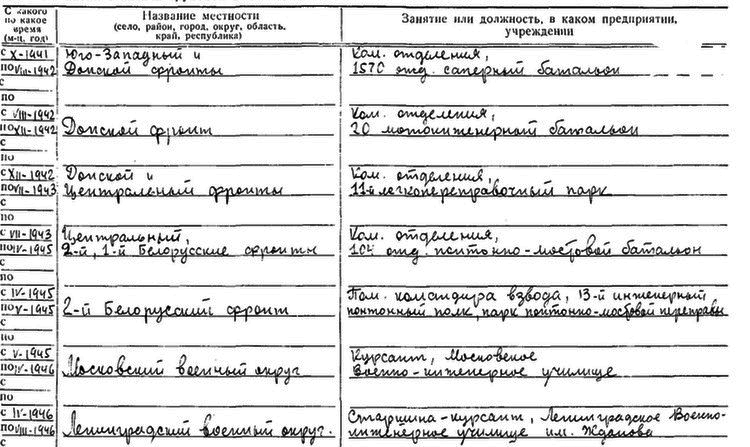 С какого по какое время (м-ц, год)
Название местности
(село, район, город, округ, область, край, республика)
Занятие или должность, в каком предприятии, учреждении
с X-1941
по VIII-1942
Юго-Западный и
Донской фронты
Ком. отделения,
1570 отд. саперный батальон
с
по
с VIII-1942
по XII-1942
Донской фронт
Ком. отделения,
20 мотоинженерный батальон
с
по
с XII-1942
по VII-1943
Донской и
Центральный фронты
Ком. отделения,
11-й легкопереправочный парк
с
по
с VII-1943
по IV-1945
Центральный,
2-й, 1-й Белорусские фронты
Ком. отделения,
104 отд. понтонно-мостовой батальон
с
по
с IV-1945
по V-1945
2-й Белорусский фронт
Пом. командира взвода, 13-й инженерный
понтонный полк, парк понтонно-мостовой переправы
с
по
с V-1945
по IV-1946
Московский военный округ
Курсант, Московское
Военно-инженерное училище
с
по
с IV-1946
по VIII-1946
Ленинградский военный округ.
Старшина-курсант, Ленинградское Военно-
инженерное училище им. Жданова